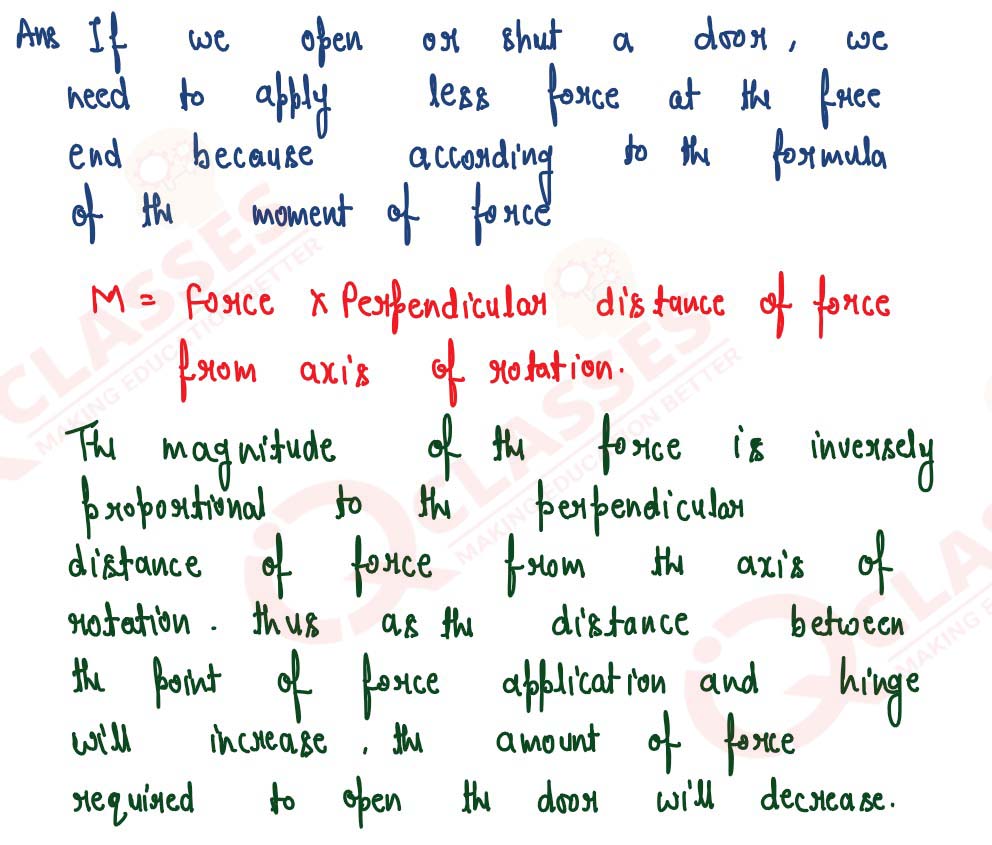 Ans If we open or shut a door, we
need to apply less force at the free
end because according to the formula
of the moment of force
M = force x Perpendicular distance of force
from axis of rotation.
The magnitude of the force is inversely
proportional to the perpendicular
distance of force from the axis of
rotation. thus as the distance between
the point of force application and hinge
will increase, the amount of force
required to open the door will decrease.
CLASSES
MAKING EDUCATION BETTER
CLASSES
MAKING EDUCATION BETTER
CLASSES
MAKING E